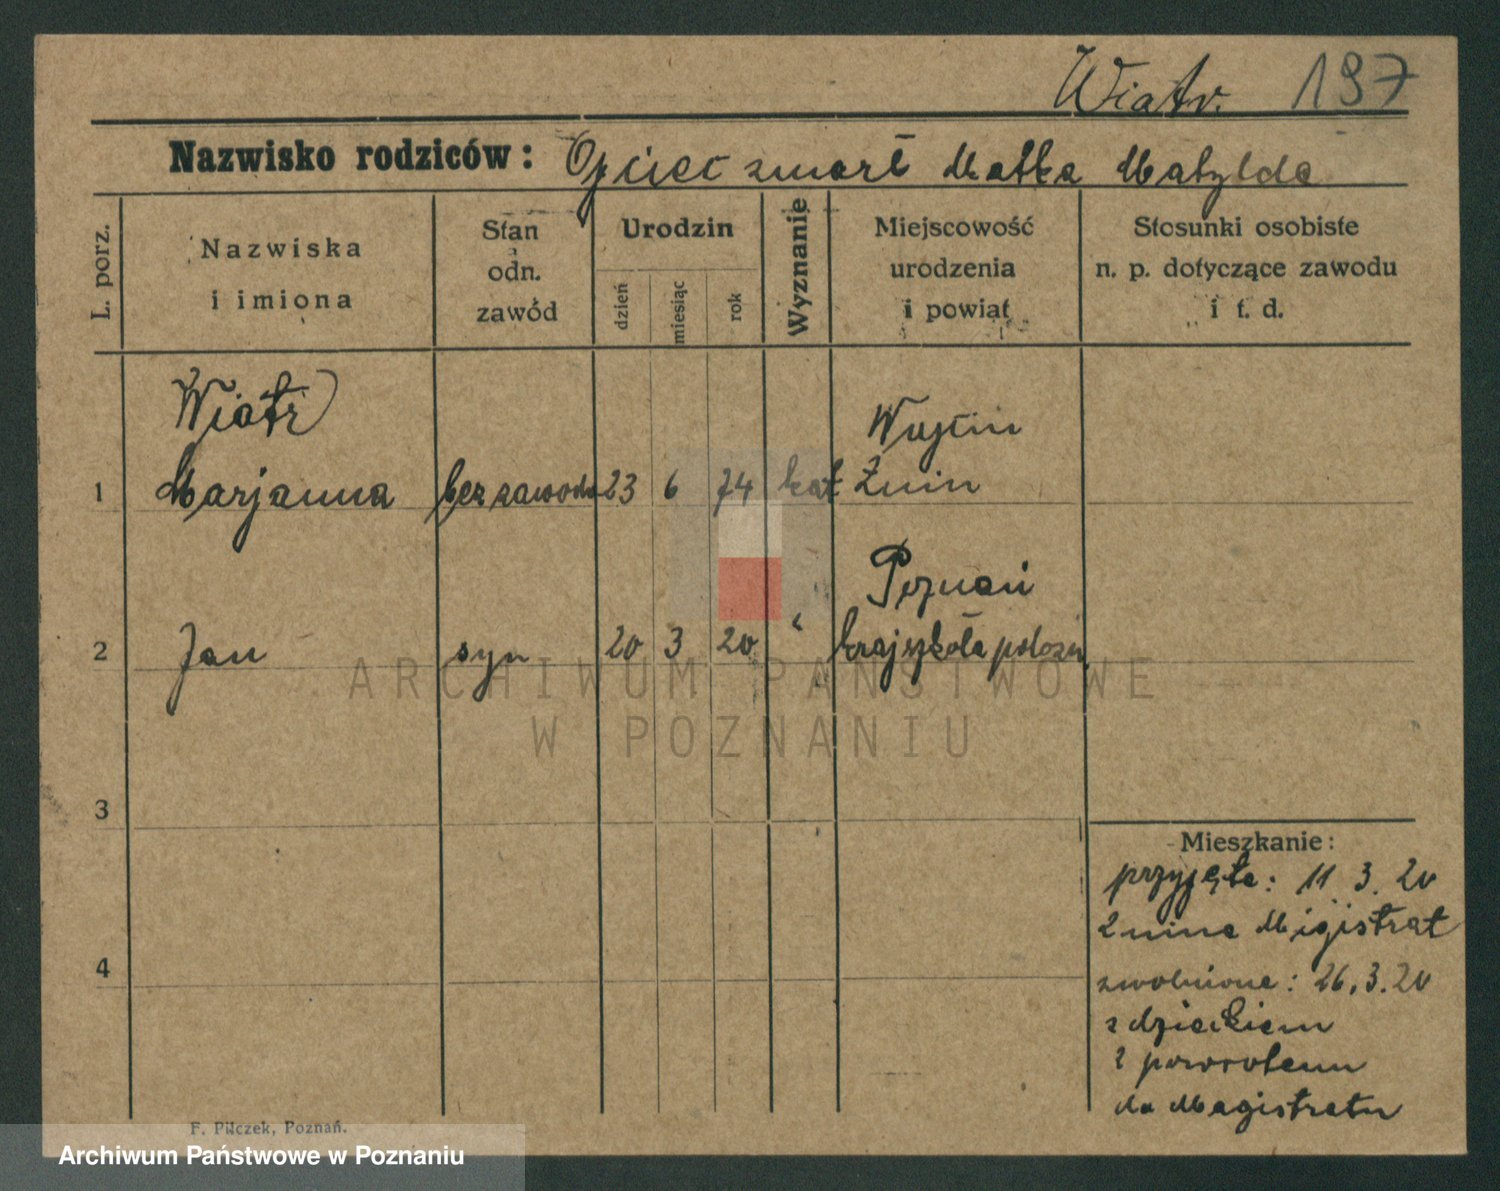 Wiatr. 197
Nazwisko rodziców: Ojciec zmarł Matka Matylda
L. porz.
Nazwiska
i imiona
Stan
odn.
zawód
Urodzin
dzień
miesiąc
rok
Wyznanie
Miejscowość
urodzenia
i powiat
Stosunki osobiste
n. p. dotyczące zawodu
i t. d.
Wiatr
Wujcin
1 Marjanna bez zawodu 23 6 74 kat Żnin
Poznań
2 Jan syn 20 3 20 " kraj szkoła położn
3
4
Mieszkanie:
przyjęta: 11 3. 20
Żnina Magistrat
zwolniona: 26.3.20
z dzieckiem
z powrotem
do Magistratu
F. Pilczek, Poznań.
ARCHIWUM PAŃSTWOWE
W POZNANIU
Archiwum Państwowe w Poznaniu